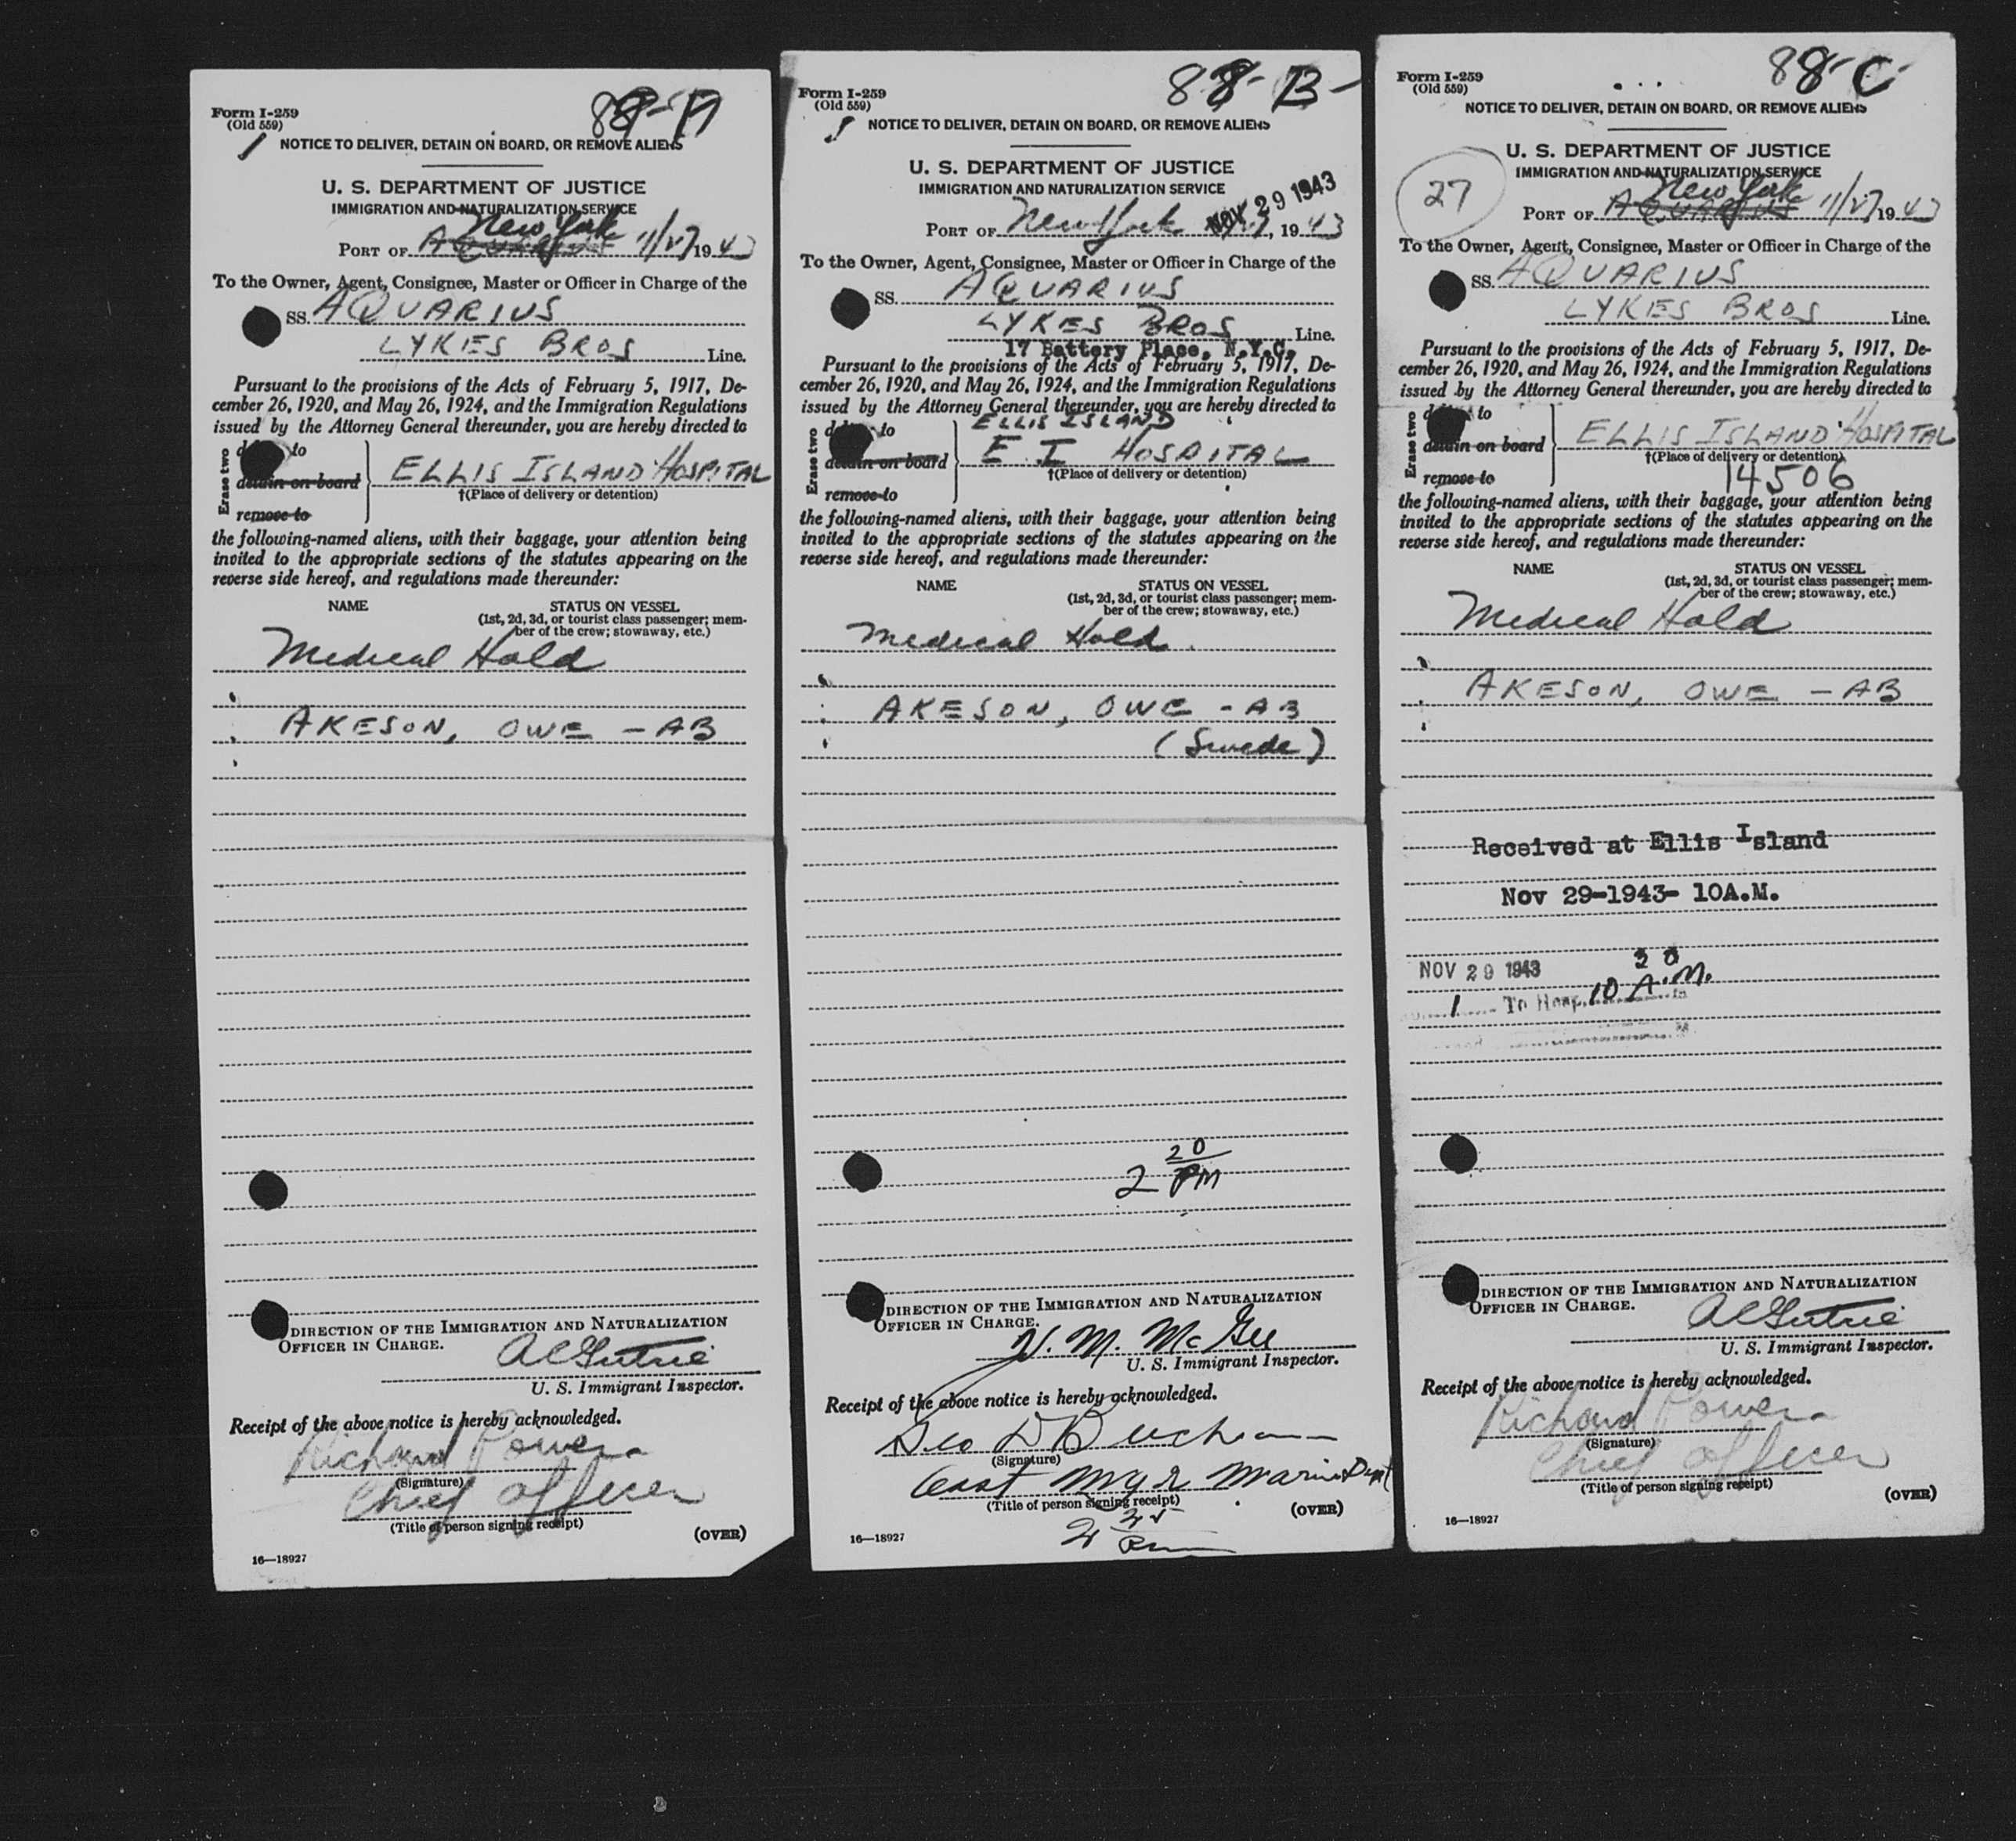 88-A
Form I-259
(Old 559)
NOTICE TO DELIVER, DETAIN ON BOARD, OR REMOVE ALIENS
U. S. DEPARTMENT OF JUSTICE
IMMIGRATION AND NATURALIZATION SERVICE
New York
PORT OF AQUARIUS 11/27 1943
To the Owner, Agent, Consignee, Master or Officer in Charge of the
SS. AQUARIUS
LYKES BROS Line.
Pursuant to the provisions of the Acts of February 5, 1917, De-
cember 26, 1920, and May 26, 1924, and the Immigration Regulations
issued by the Attorney General thereunder, you are hereby directed to
Erase two
to
detain on board
remove to
ELLIS ISLAND HOSPITAL
†(Place of delivery or detention)
the following-named aliens, with their baggage, your attention being
invited to the appropriate sections of the statutes appearing on the
reverse side hereof, and regulations made thereunder:
NAME STATUS ON VESSEL
(1st, 2d, 3d, or tourist class passenger; mem-
ber of the crew; stowaway, etc.)
Medical Hold
AKESON, OWE - AB
DIRECTION OF THE IMMIGRATION AND NATURALIZATION
OFFICER IN CHARGE.
U. S. Immigrant Inspector.
Receipt of the above notice is hereby acknowledged.
Richard
(Signature)
Chief Officer
(Title of person signing receipt)
(OVER)
16—18927
88-B-
Form I-259
(Old 559)
NOTICE TO DELIVER, DETAIN ON BOARD, OR REMOVE ALIENS
U. S. DEPARTMENT OF JUSTICE
IMMIGRATION AND NATURALIZATION SERVICE
NOV 29 1943
PORT OF New York , 1943
To the Owner, Agent, Consignee, Master or Officer in Charge of the
SS. AQUARIUS
LYKES BROS Line.
17 Battery Place, N.Y.C.
Pursuant to the provisions of the Acts of February 5, 1917, De-
cember 26, 1920, and May 26, 1924, and the Immigration Regulations
issued by the Attorney General thereunder, you are hereby directed to
Erase two
to
detain on board
remove to
ELLIS ISLAND
E I HOSPITAL
†(Place of delivery or detention)
the following-named aliens, with their baggage, your attention being
invited to the appropriate sections of the statutes appearing on the
reverse side hereof, and regulations made thereunder:
NAME STATUS ON VESSEL
(1st, 2d, 3d, or tourist class passenger; mem-
ber of the crew; stowaway, etc.)
Medical Hold
AKESON, OWE - AB
(Swede)
2 20 PM
DIRECTION OF THE IMMIGRATION AND NATURALIZATION
OFFICER IN CHARGE.
McGee
U. S. Immigrant Inspector.
Receipt of the above notice is hereby acknowledged.
Geo D
(Signature)
Mgr Marine Dept
(Title of person signing receipt)
(OVER)
16—18927
2 35
88-C
Form I-259
(Old 559)
NOTICE TO DELIVER, DETAIN ON BOARD, OR REMOVE ALIENS
U. S. DEPARTMENT OF JUSTICE
IMMIGRATION AND NATURALIZATION SERVICE
27
New York
PORT OF AQUARIUS 11/27 1943
To the Owner, Agent, Consignee, Master or Officer in Charge of the
SS. AQUARIUS
LYKES BROS Line.
Pursuant to the provisions of the Acts of February 5, 1917, De-
cember 26, 1920, and May 26, 1924, and the Immigration Regulations
issued by the Attorney General thereunder, you are hereby directed to
Erase two
to
detain on board
remove to
ELLIS ISLAND HOSPITAL
†(Place of delivery or detention)
14506
the following-named aliens, with their baggage, your attention being
invited to the appropriate sections of the statutes appearing on the
reverse side hereof, and regulations made thereunder:
NAME STATUS ON VESSEL
(1st, 2d, 3d, or tourist class passenger; mem-
ber of the crew; stowaway, etc.)
Medical Hold
AKESON, OWE - AB
Received at Ellis Island
Nov 29-1943- 10A.M.
NOV 29 1943
1 To Hosp. 10 A.M.
DIRECTION OF THE IMMIGRATION AND NATURALIZATION
OFFICER IN CHARGE.
U. S. Immigrant Inspector.
Receipt of the above notice is hereby acknowledged.
Richard
(Signature)
Chief Officer
(Title of person signing receipt)
(OVER)
16—18927